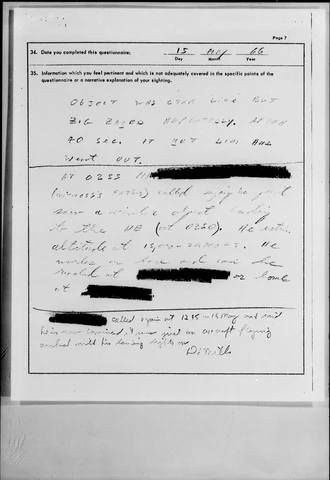 Page 7
34. Date you completed this questionnaire: 15 May 66
Day Month Year
35. Information which you feel pertinent and which is not adequately covered in the specific points of the
questionnaire or a narrative explanation of your sighting.
OBJECT WAS STAR LIKE BUT
ZIG ZAGED REPEATEDLY. AFTER
40 SEC. IT GOT DIM AND
WENT OUT.
AT 0255 Mr
(witness's FATHER) called saying he just
saw a similar object heading
to the NE (at 0250). He estim.
altitude at 15,000-20,000 ft. He
works on base and can be
reached at or home
at
called again at 1215 on 15 May and said
he is now convinced it was just an aircraft flying
around with his landing lights on